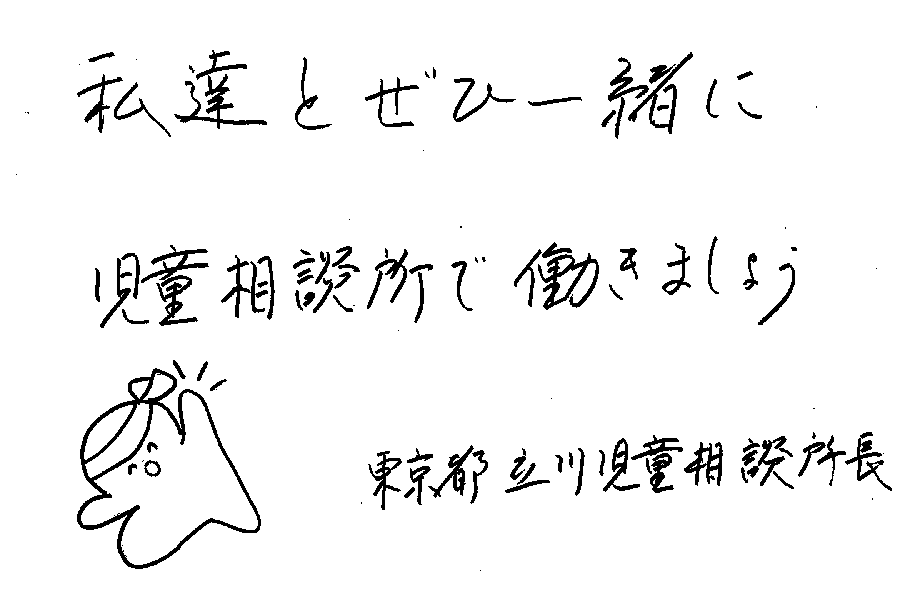 私達とぜひ一緒に
児童相談所で働きましょう
東京都立川児童相談所長